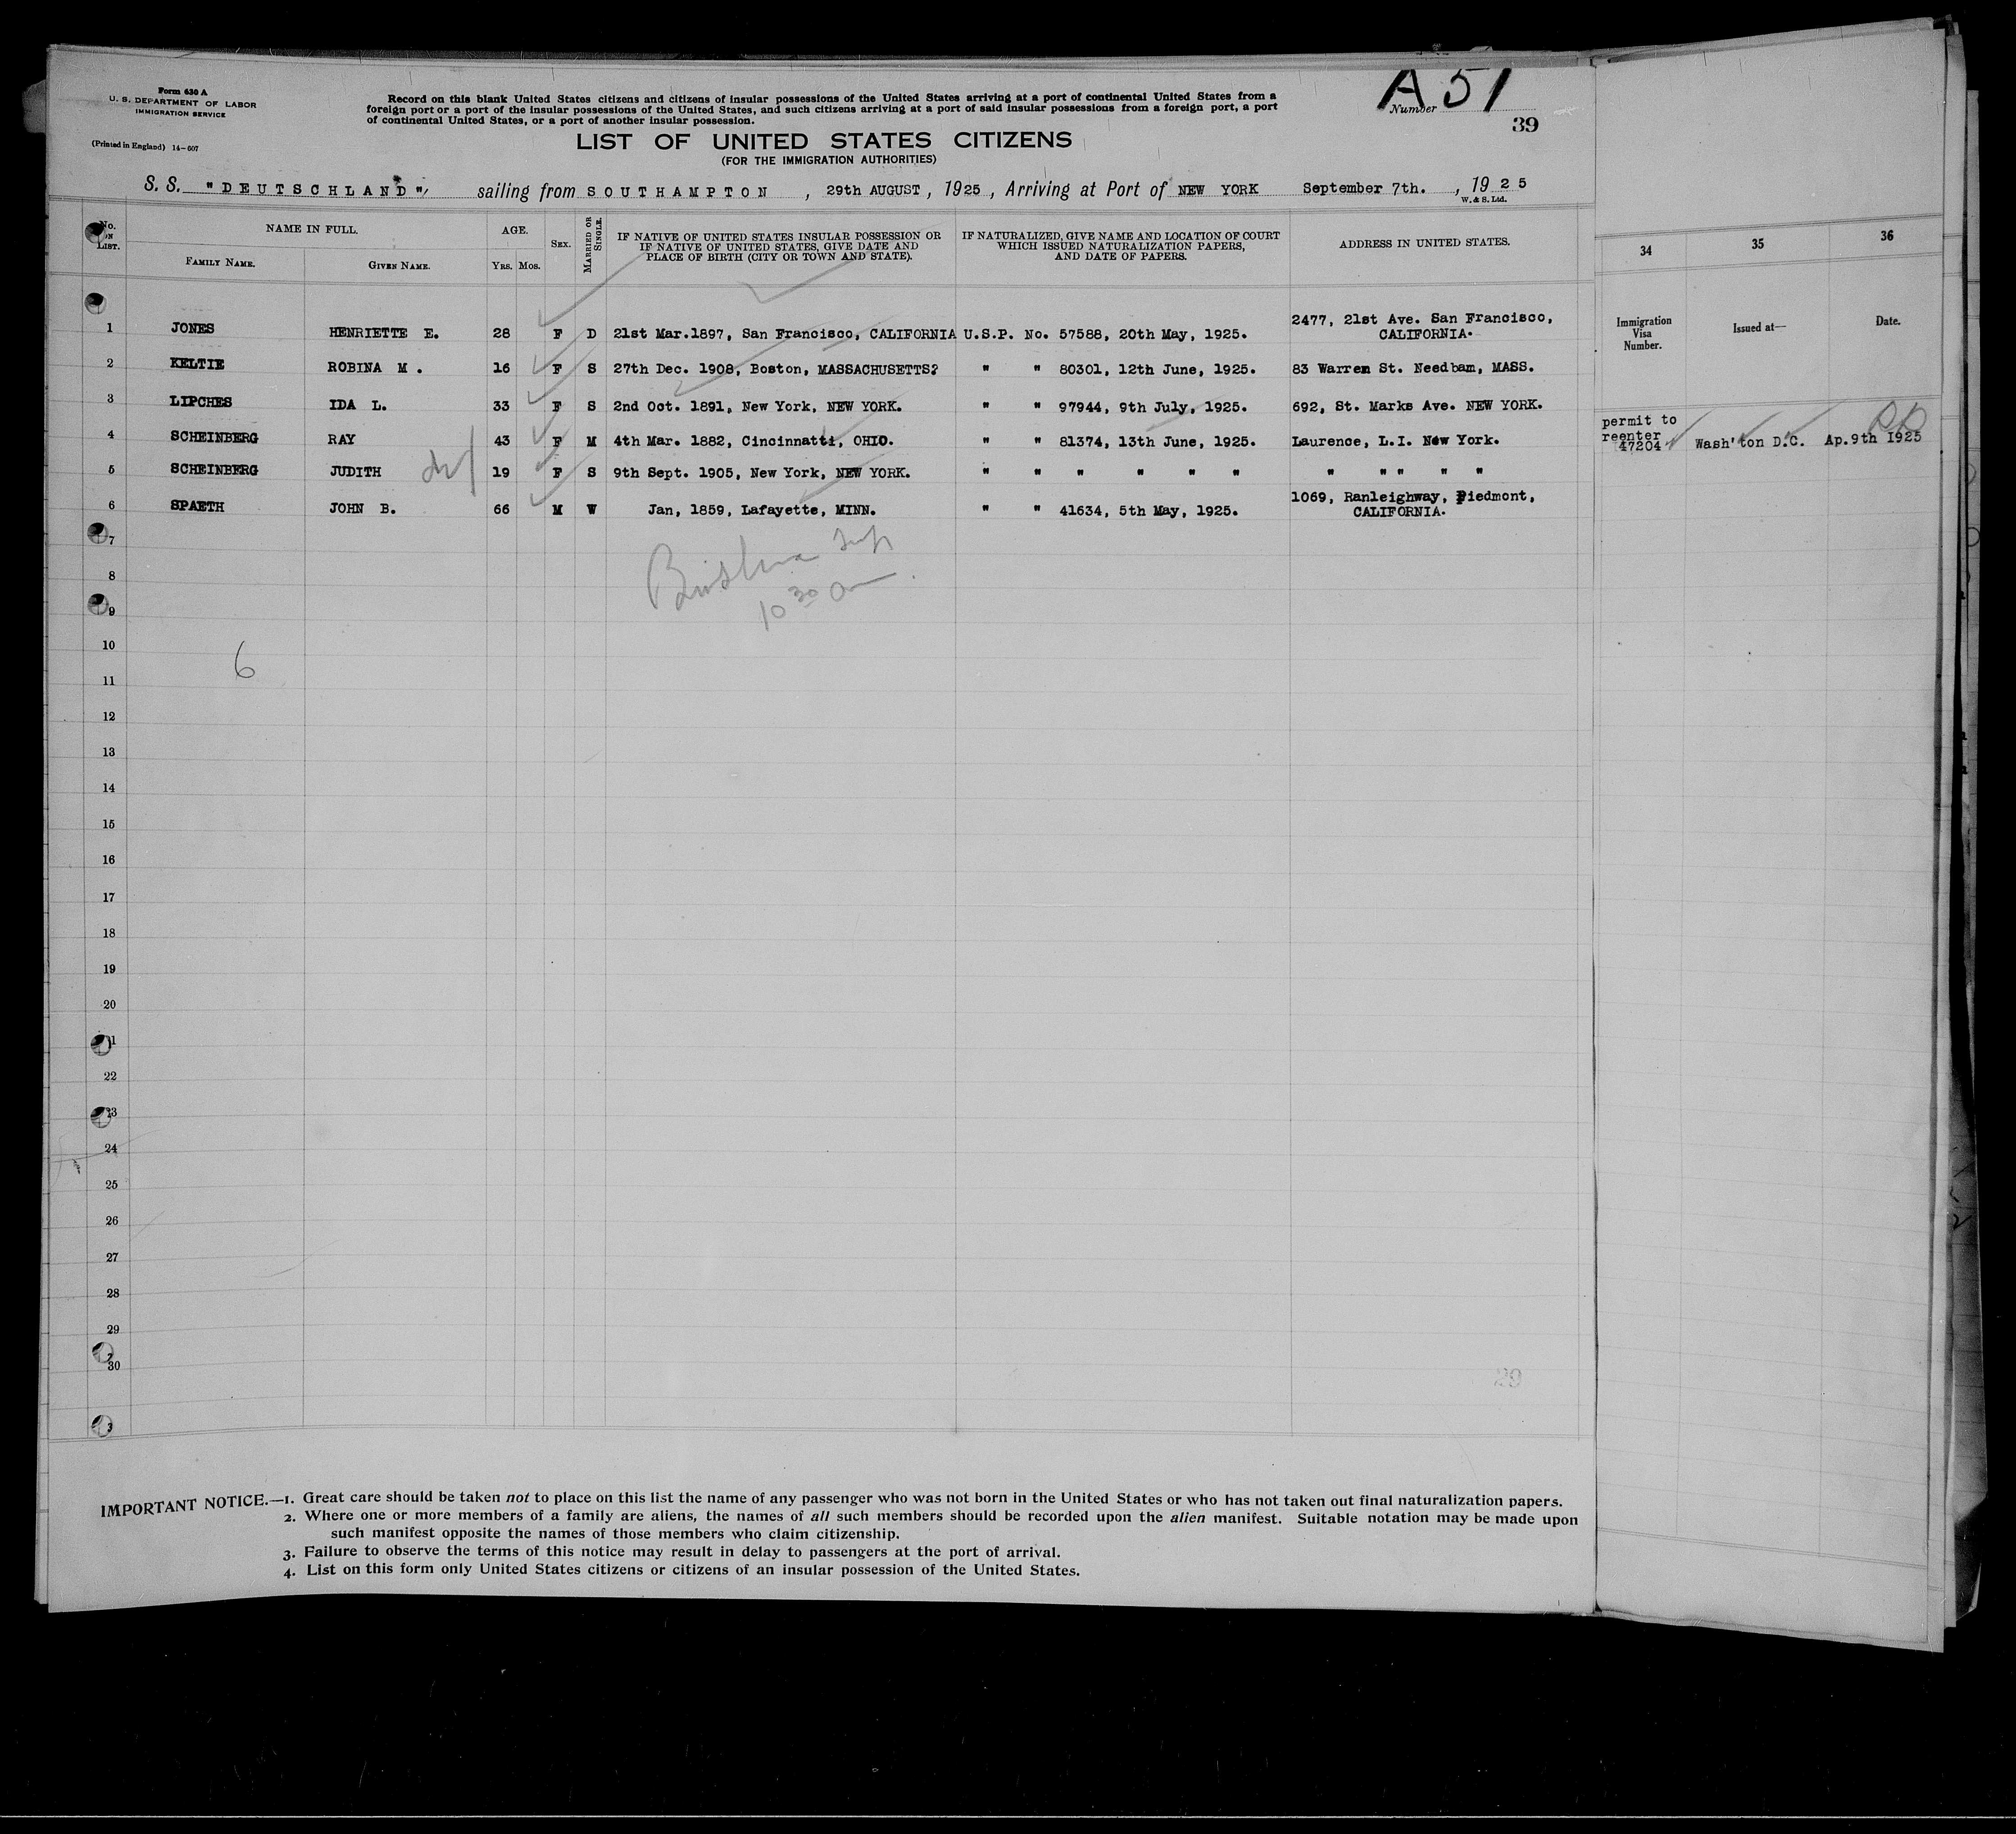 Form 630 A
U. S. DEPARTMENT OF LABOR
IMMIGRATION SERVICE
(Printed in England) 14-607
Record on this blank United States citizens and citizens of insular possessions of the United States arriving at a port of continental United States from a
foreign port or a port of the insular possessions of the United States, and such citizens arriving at a port of said insular possessions from a foreign port, a port
of continental United States, or a port of another insular possession.
A 51
Number
39
LIST OF UNITED STATES CITIZENS
(FOR THE IMMIGRATION AUTHORITIES)
S. S. "DEUTSCHLAND", sailing from SOUTHAMPTON , 29th AUGUST, 1925, Arriving at Port of NEW YORK September 7th. , 1925
W. & S. Ltd.
No. ON LIST.
NAME IN FULL.
FAMILY NAME. GIVEN NAME.
AGE.
YRS. MOS.
SEX.
MARRIED OR SINGLE.
IF NATIVE OF UNITED STATES INSULAR POSSESSION OR
IF NATIVE OF UNITED STATES, GIVE DATE AND
PLACE OF BIRTH (CITY OR TOWN AND STATE).
IF NATURALIZED, GIVE NAME AND LOCATION OF COURT
WHICH ISSUED NATURALIZATION PAPERS,
AND DATE OF PAPERS.
ADDRESS IN UNITED STATES.
34 35 36
Immigration
Visa
Number.
Issued at—
Date.
1 JONES HENRIETTE E. 28 F D 21st Mar.1897, San Francisco, CALIFORNIA U.S.P. No. 57588, 20th May, 1925. 2477, 21st Ave. San Francisco,
CALIFORNIA.
2 KELTIE ROBINA M . 16 F S 27th Dec. 1908, Boston, MASSACHUSETTS? " " 80301, 12th June, 1925. 83 Warren St. Needbam, MASS.
3 LIPCHES IDA L. 33 F S 2nd Oct. 1891, New York, NEW YORK. " " 97944, 9th July, 1925. 692, St. Marks Ave. NEW YORK.
4 SCHEINBERG RAY 43 F M 4th Mar. 1882, Cincinnatti, OHIO. " " 81374, 13th June, 1925. Laurence, L.I. New York.
permit to
reenter
47204 Wash'ton D.C. Ap.9th 1925
5 SCHEINBERG JUDITH 19 F S 9th Sept. 1905, New York, NEW YORK. " " " " " " " " " " "
6 SPAETH JOHN B. 66 M W Jan, 1859, Lafayette, MINN. " " 41634, 5th May, 1925. 1069, Ranleighway, Piedmont,
CALIFORNIA.
7
8
10 30 am
9
10
6
11
12
13
14
15
16
17
18
19
20
21
22
23
24
25
26
27
28
29
30
29
3
IMPORTANT NOTICE.—1. Great care should be taken not to place on this list the name of any passenger who was not born in the United States or who has not taken out final naturalization papers.
2. Where one or more members of a family are aliens, the names of all such members should be recorded upon the alien manifest. Suitable notation may be made upon
such manifest opposite the names of those members who claim citizenship.
3. Failure to observe the terms of this notice may result in delay to passengers at the port of arrival.
4. List on this form only United States citizens or citizens of an insular possession of the United States.